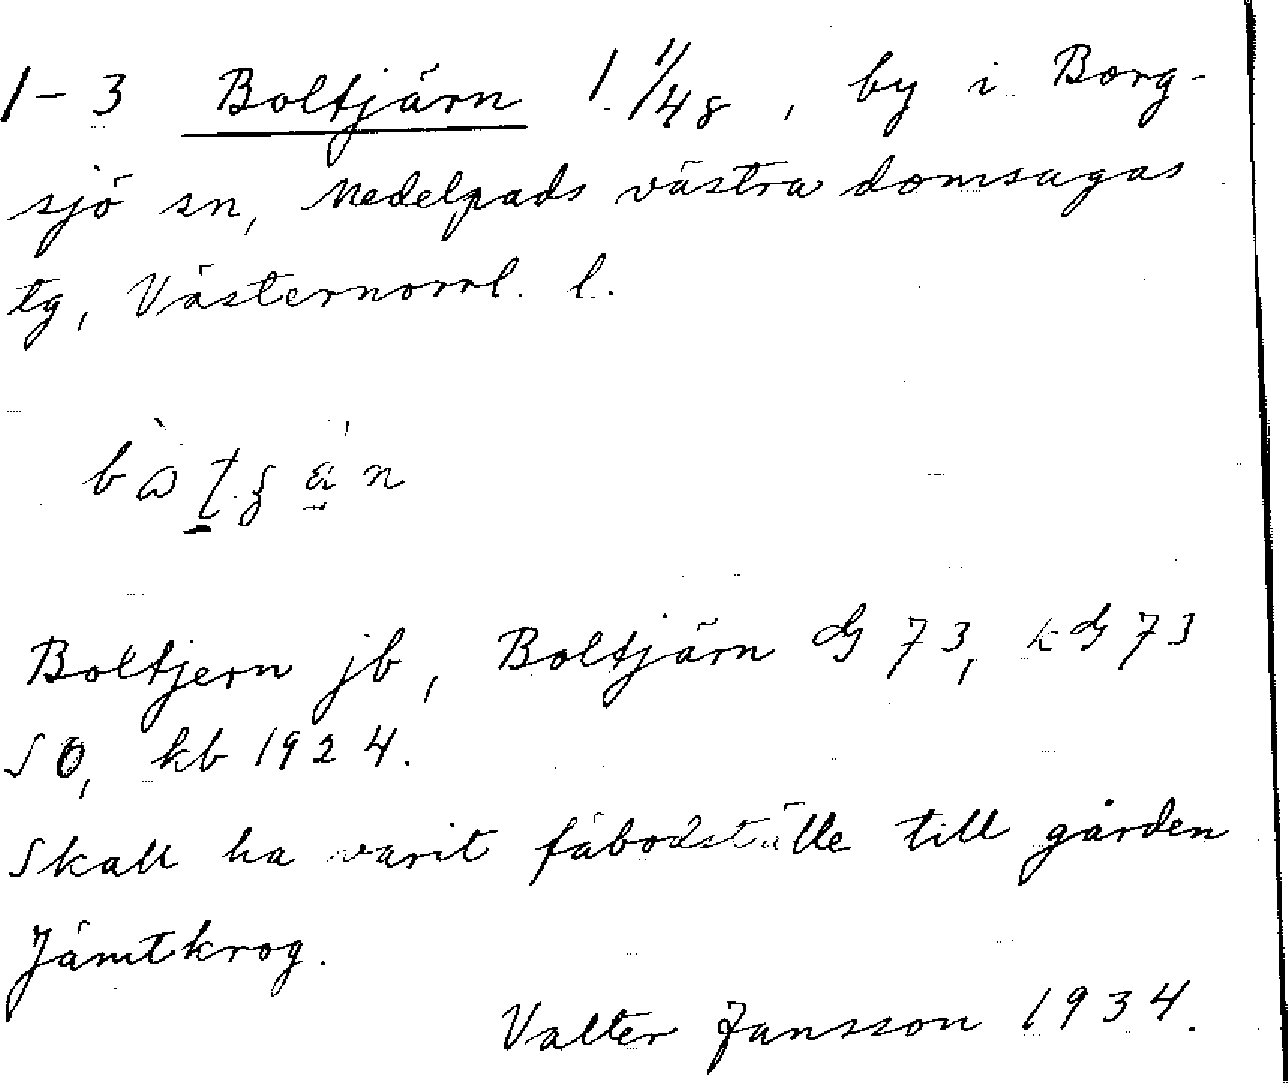 1-3 Boltjärn 1 1/48, by i Borg-
sjö sn, Medelpads västra domsagas
tg, Västernorrl. l.
Boltjern jb, Boltjärn G 73, kG 73
SO, kb 1924.
Skall ha varit fäbodställe till gården
Jämtkrog.
Valter Jansson 1934.